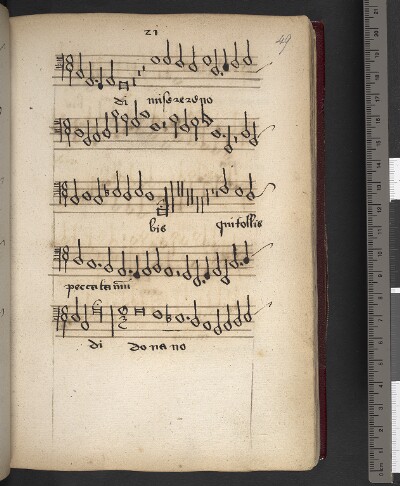 21
49
di miserere no
bis qui tollis
peccata mu
di dona no